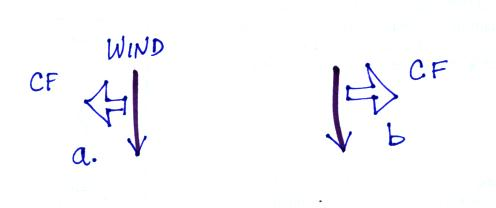 WIND
CF
a.
CF
b